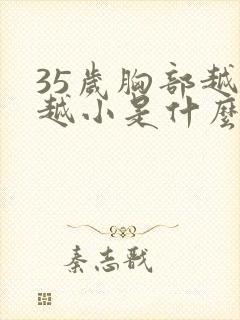 35歲胸部越
越小是什麼
秦志戬